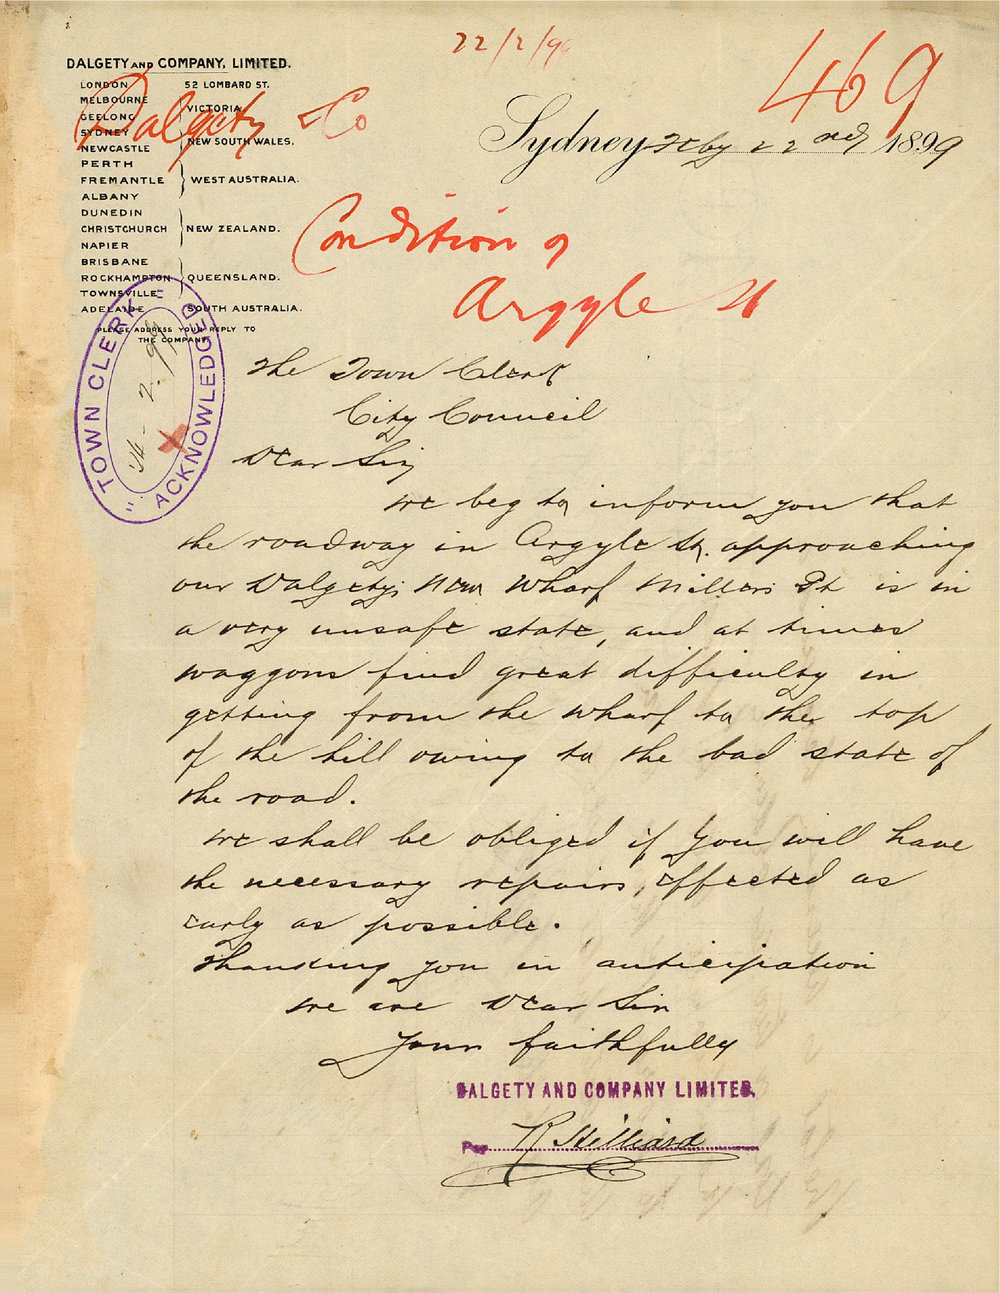 22/2/99
469
DALGETY AND COMPANY, LIMITED.
LONDON 52 LOMBARD ST.
MELBOURNE
GEELONG VICTORIA
SYDNEY
NEWCASTLE NEW SOUTH WALES.
PERTH
FREMANTLE WEST AUSTRALIA.
ALBANY
DUNEDIN
CHRISTCHURCH NEW ZEALAND.
NAPIER
BRISBANE
ROCKHAMPTON QUEENSLAND.
TOWNSVILLE
ADELAIDE SOUTH AUSTRALIA.
PLEASE ADDRESS YOUR REPLY TO
THE COMPANY.
Dalgety & Co
Sydney Feby 22nd 1899
Condition of
Argyle St
"TOWN CLERK"
ACKNOWLEDGED
2. 99
The Town Clerk
City Council
Dear Sir,
We beg to inform you that
the roadway in Argyle St. approaching
our Dalgety's New Wharf Millers Pt is in
a very unsafe state, and at times
waggons find great difficulty in
getting from the wharf to the top
of the hill owing to the bad state of
the road.
We shall be obliged if you will have
the necessary repairs, effected as
early as possible.
Thanking you in anticipation
We are Dear Sir
Yours faithfully
DALGETY AND COMPANY LIMITED.
Per R Hilliard